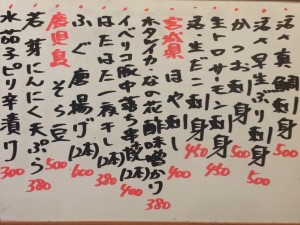 活〆真鯛刺身 500
活〆早生ぶり刺身 500
かつお刺身 500
生トロサーモン刺身 450
活・生だこ刺身 450
宮城県 ほや刺し 400
ホタルイカとなの花酢味噌かけ 380
イベリコ豚中落ち串焼(2本) 400
はたはた一夜干し(2本) 380
ふぐ唐揚げ(2本) 600
鹿児島 そら豆 500
若芽にんにく天ぷら 380
水茄子ピリ辛漬け 300